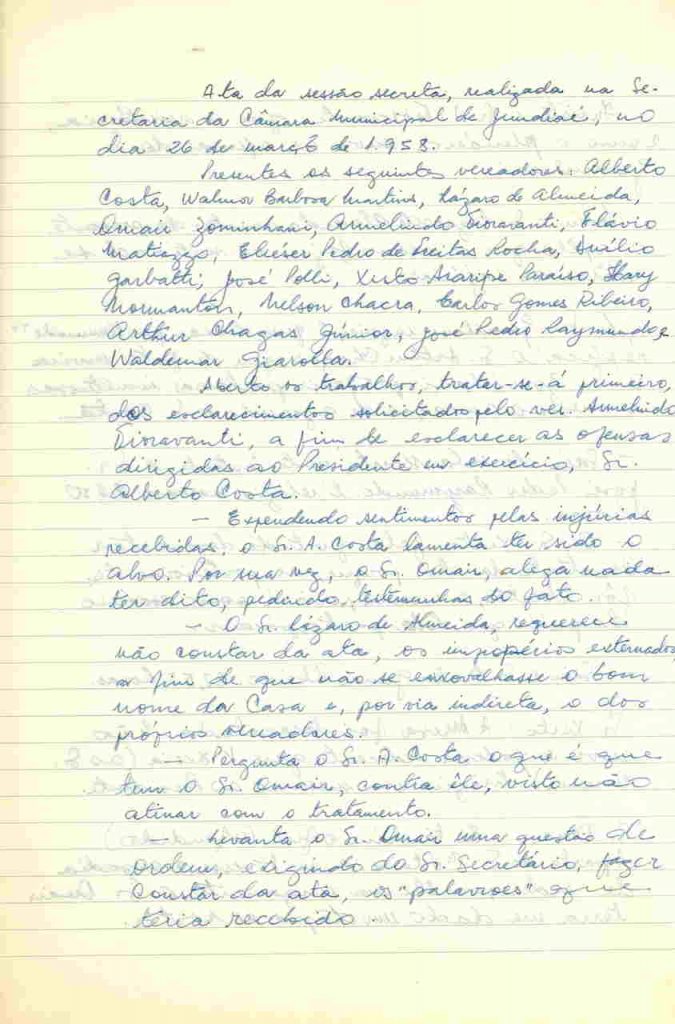 Ata da sessão secreta, realizada na Se-
cretaria da Câmara Municipal de Jundiaí, no
dia 26 de março de 1.958.
Presentes os seguintes vereadores: Alberto
Costa, Walmor Barbosa Martins, Lázaro de Almeida,
Omair Zominhani, Armelindo Fioravanti, Flávio
Eliéser Pedro de Freitas Rocha, Duílio
Garbatti, José Polli, Xisto Araripe Paraiso, Hary
Normanton, Nelson Chacra, Carlos Gomes Ribeiro,
Arthur Chagas Júnior, José Pedro Raymundo e
Waldemar Giarolla.
Aberto os trabalhos, trater-se-á primeiro,
dos esclarecimentos solicitados pelo ver. Armelindo
Fioravanti, a fim de esclarecer as ofensas
dirigidas ao Presidente em exercício, Sr.
Alberto Costa.
— Expendendo sentimentos pelas injúrias
recebidas, o Sr. A. Costa lamenta ter sido o
alvo. Por sua vez, o Sr. Omair, alega nada
ter dito, pedindo, testemunhas do fato.
— O Sr. Lázaro de Almeida, requerece
não constar da ata, os impopérios externados
a fim de que não se enxovalhasse o bom
nome da Casa e, por via indireta, o dos
próprios vereadores.
— Pergunta o Sr. A. Costa o que é que
tem o Sr. Omair, contra êle, visto não
atinar com o tratamento.
— Levanta o Sr. Omair uma questão de
ordem, exigindo do Sr. Secretário, fazer
constar da ata, os "palavrões" que
teria recebido